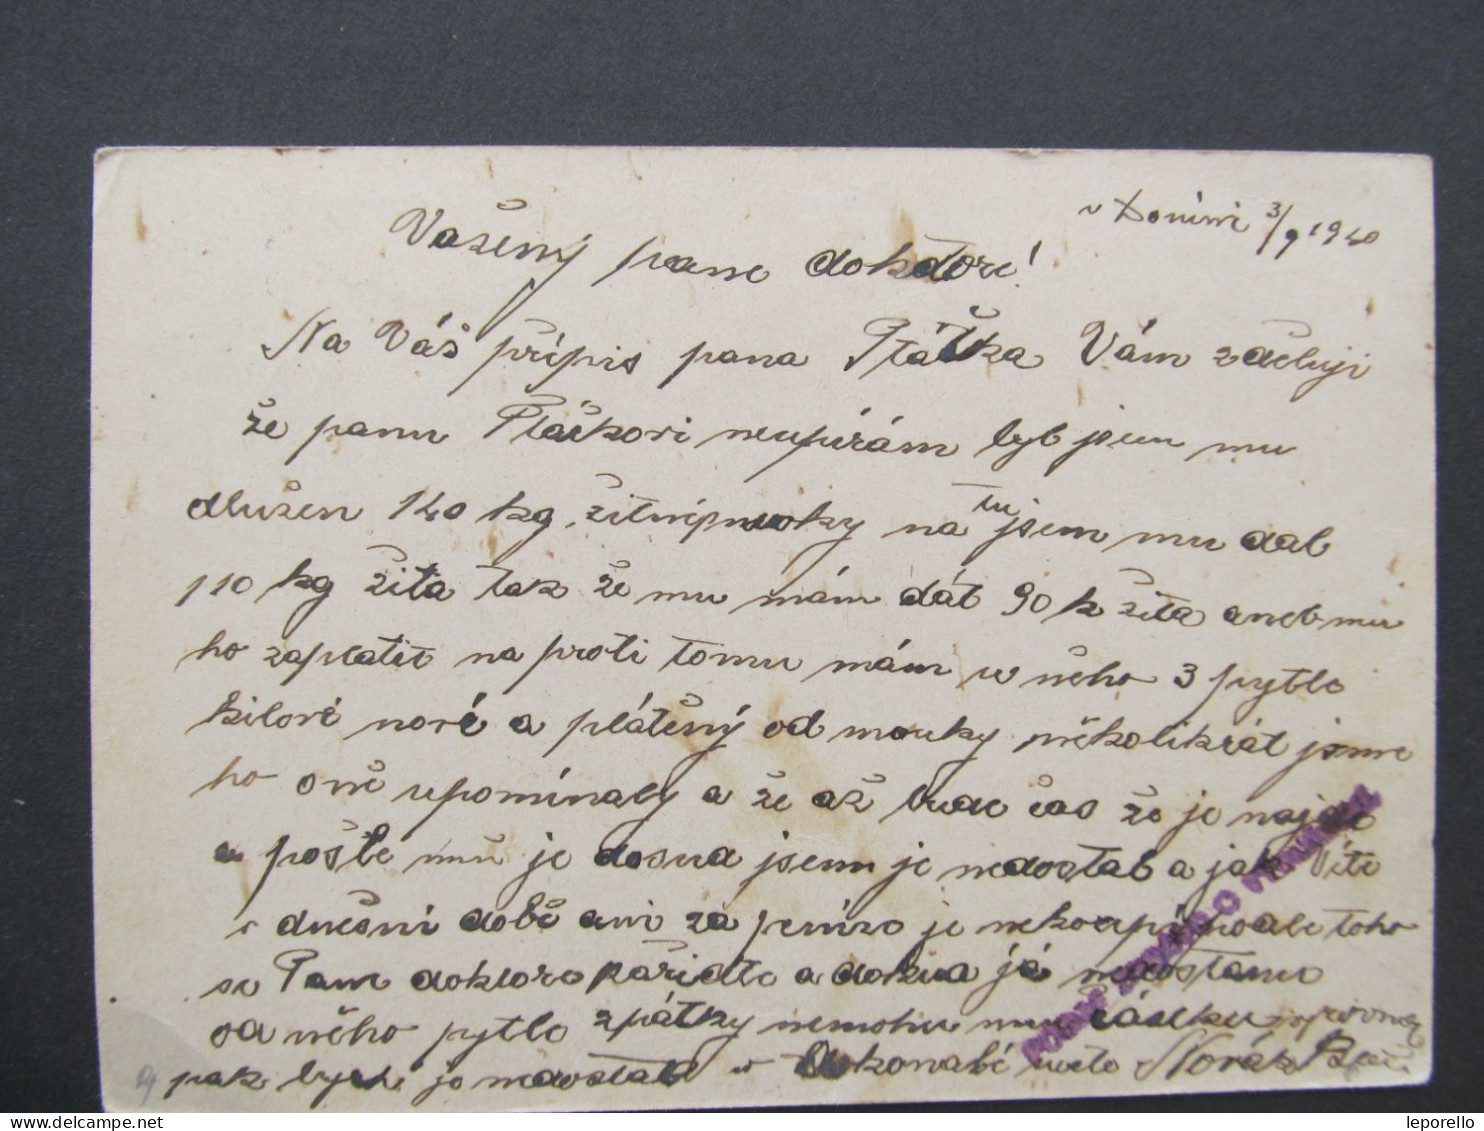 v 3/9 1940
Vážený pane doktore!
Na Váš přípis pana Ptáčka Vám zděluji
že panu Ptáčkovi neupírám byl jsem mu
dlužen 140 kg žitný mouky na tu jsem mu dal
110 kg žita tak že mu mám dát 90 k žita aneb mu
ho zaplatit na proti tomu mám u něho 3 pytle
kilové nové a plátěný od mouky několikrát jsme
ho o ně upomínaly a že až bude čas že je najde
a pošle mě je dosud jsem je nedostal a jak Víte
v dnešní době ani za peníze je nekoupí
se Pane doktore a dokud já nedostanu
od něho pytle zpátky nemohu mu
pak bych je nedostal v Novák
leporello
www.delcampe.net